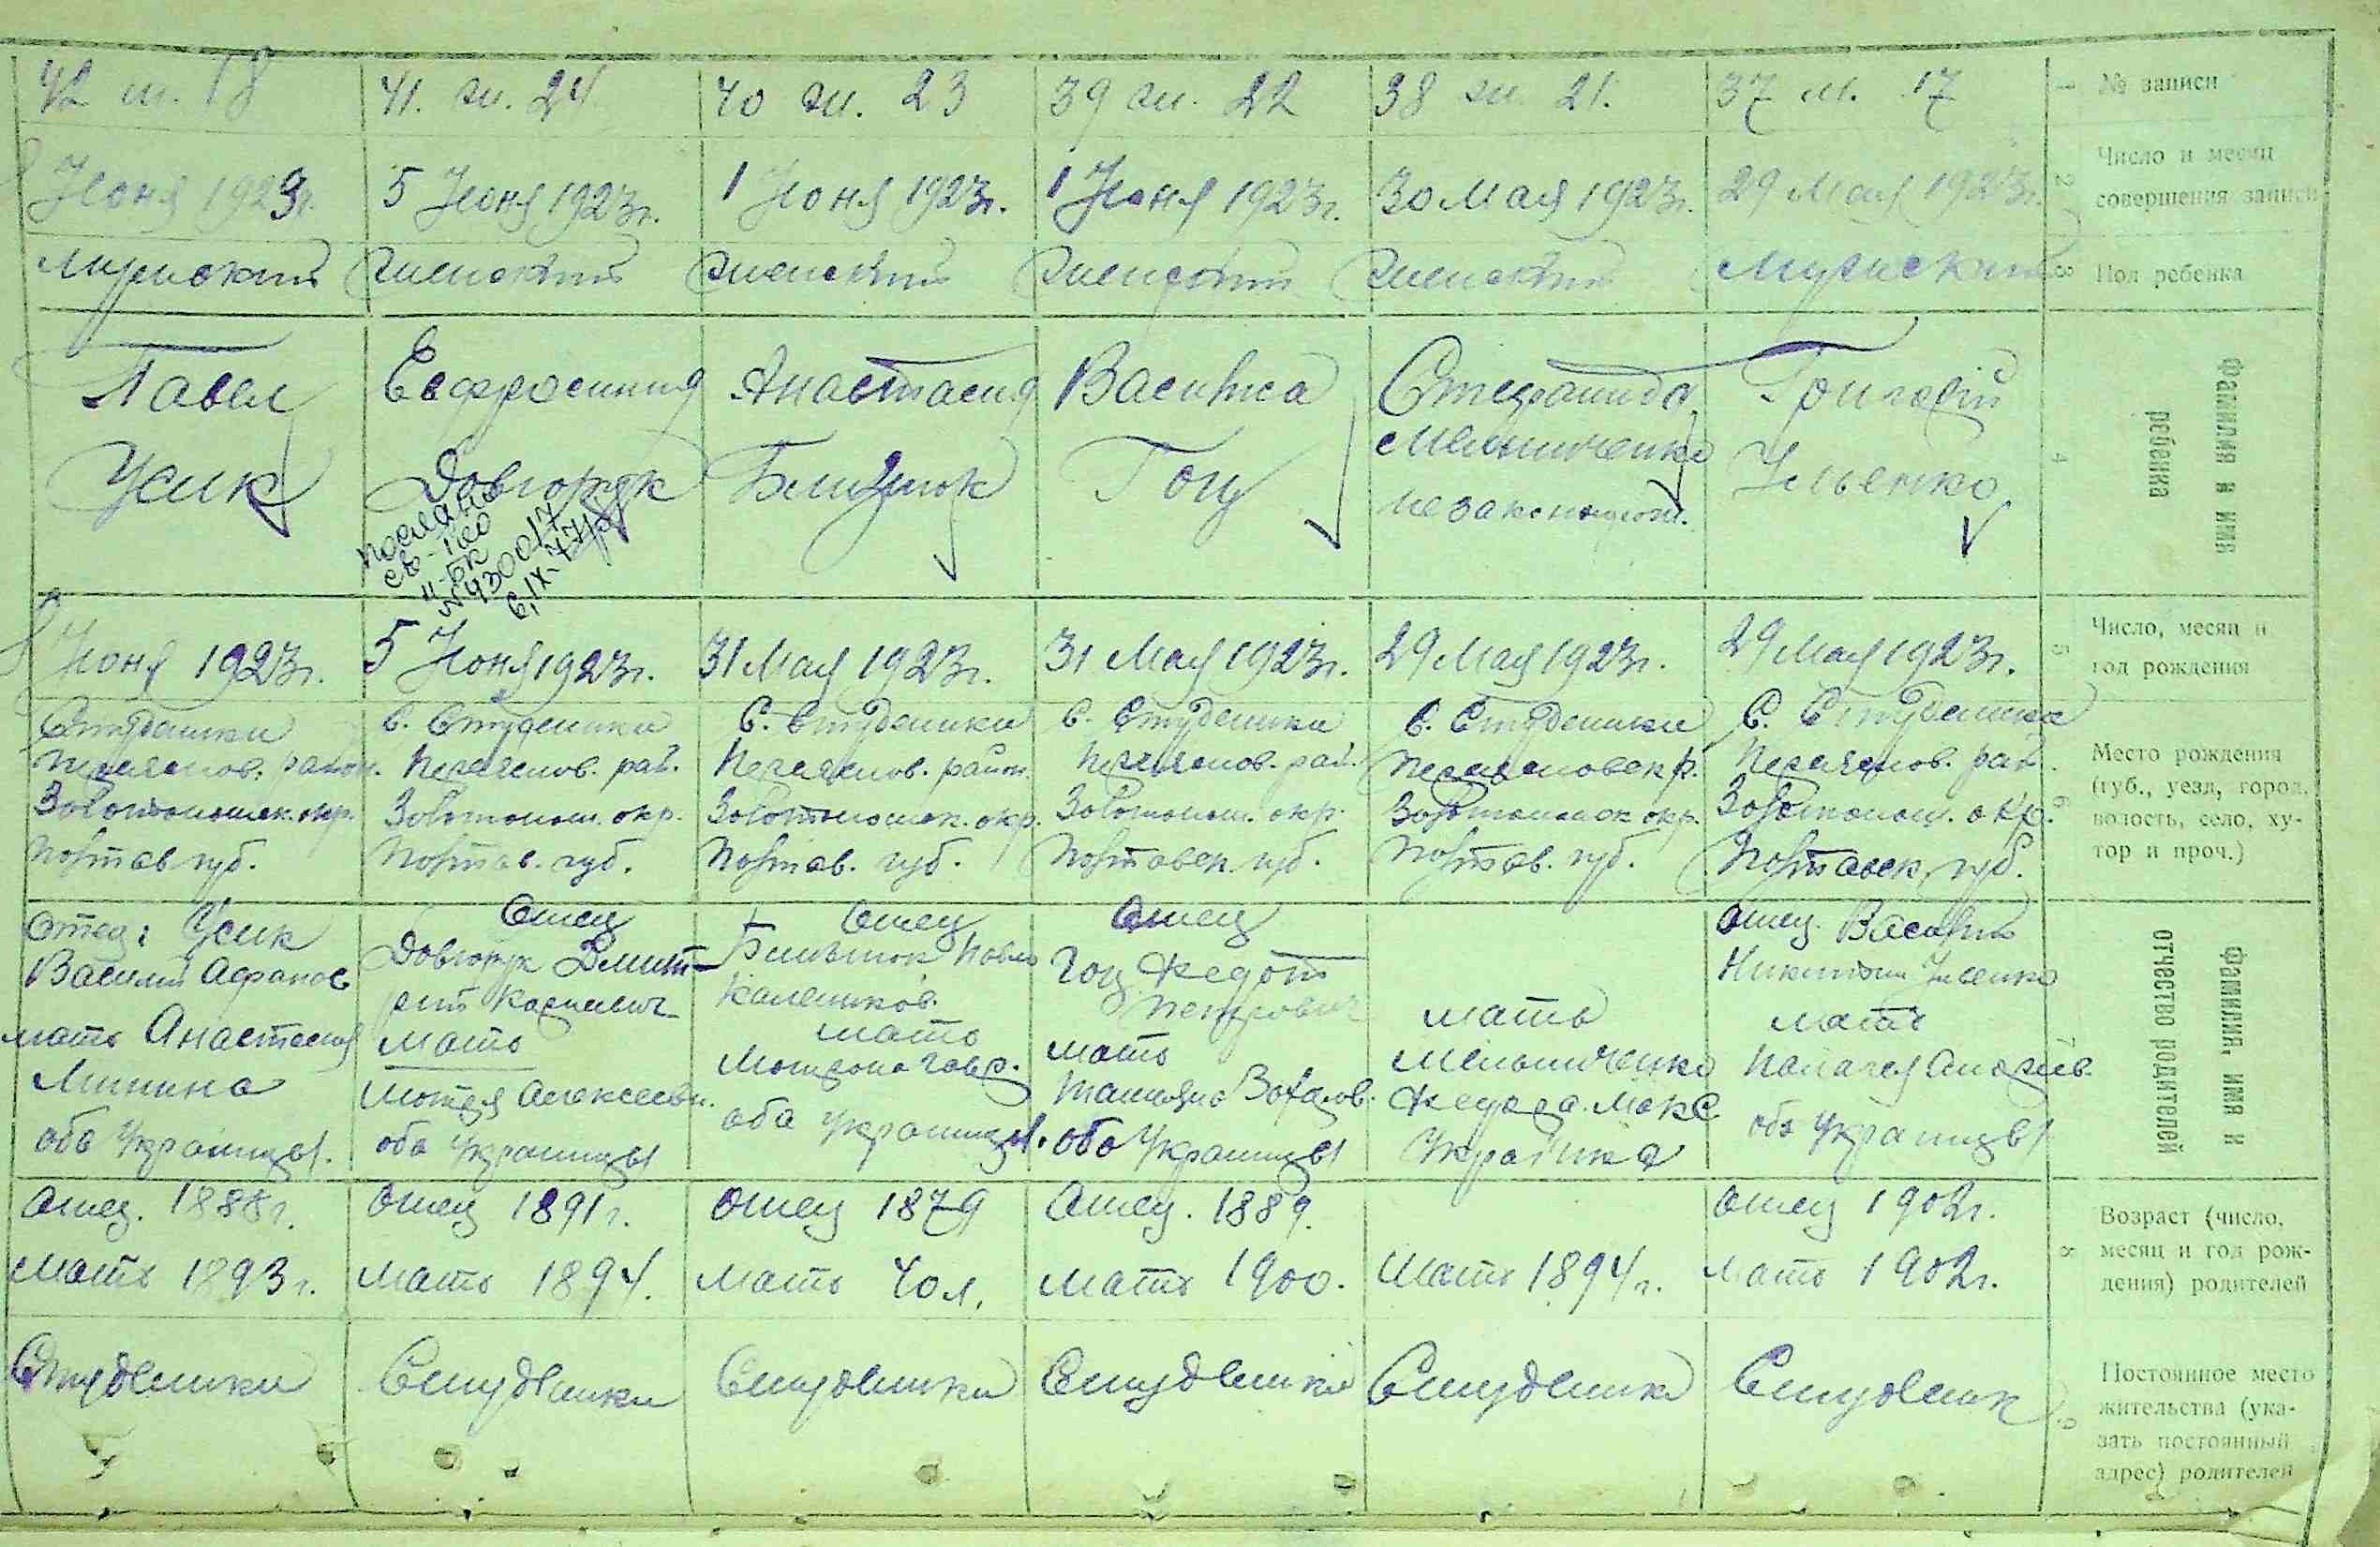 42 м. 18
41. ж. 24
40 ж. 23
39 ж. 22
38 ж. 21.
37 м. 17
1
№ записи
Июня 1923г.
5 Июня 1923г.
1 Июня 1923г.
1 Июня 1923г.
30 Мая 1923г.
29 Мая 1923г.
2
Число и месяц
совершения записи
мужский
женский
женский
женский
женский
мужский
3
Пол ребенка
Павел
Усик
Евфросиния
Довгорук
послано
св-во
II-БК
№430017
6/IX-77г
Анастасия
Василиса
Гоц
Стефанида
Мельниченко
незаконнорож.
Григорій
Ильенко
4
Фамилия и имя
ребенка
Июня 1923г.
5 Июня 1923г.
31 Мая 1923г.
31 Мая 1923г.
29 Мая 1923г.
29 Мая 1923г.
5
Число, месяц и
год рождения
Студеники
Переяслов. район.
Золотоношск. окр.
Полтав губ.
с. Студеники
Переяслов. рай.
Золотонош. окр.
Полтав. губ.
С. Студеники
Переяслов. район.
Золотоношск. окр.
Полтав. губ.
с. Студеники
Переяслов. рай.
Золотонош. окр.
Полтавск. губ.
с. Студеники
Переясловск р.
Золотоношск окр.
Полтав. губ.
С. Студеники
Переяслов. рай.
Золотонош. окр.
Полтавск. губ.
6
Место рождения
(губ., уезд, город,
волость, село, ху-
тор и проч.)
Отец: Усик
Василий Афанас
мать Анастасия
Минина
оба Украинцы.
Отец
Довгорук Дмит-
рий Карпович
Мать
Мотря Алексеевн.
оба Украинцы
Отец
Павло
мать
Мотрона Гавр.
оба Украинцы.
Отец
Гоц Федот
Петрович
мать
Татьяна Захаров.
оба Украинцы
мать
Мельниченко
Федора Макс
Українка
Отец Василий
Никитович Ильенко
мать
Палагея Андреев.
оба Украинцы
Фамилия, имя и
отчество родителей
Отец. 1888г.
Мать 1893г.
Отец 1891г.
Мать 1894.
Отец 1879
Мать 40л.
Отец. 1889.
Мать 1900.
Мать 1894г.
Отец 1902г.
Мать 1902г.
8
Возраст (число,
месяц и год рож-
дения) родителей
Студеники
Студеники
Студеники
Студеники
Студеники
Студеник
9
Постоянное место
жительства (ука-
зать постоянный
адрес) родителей